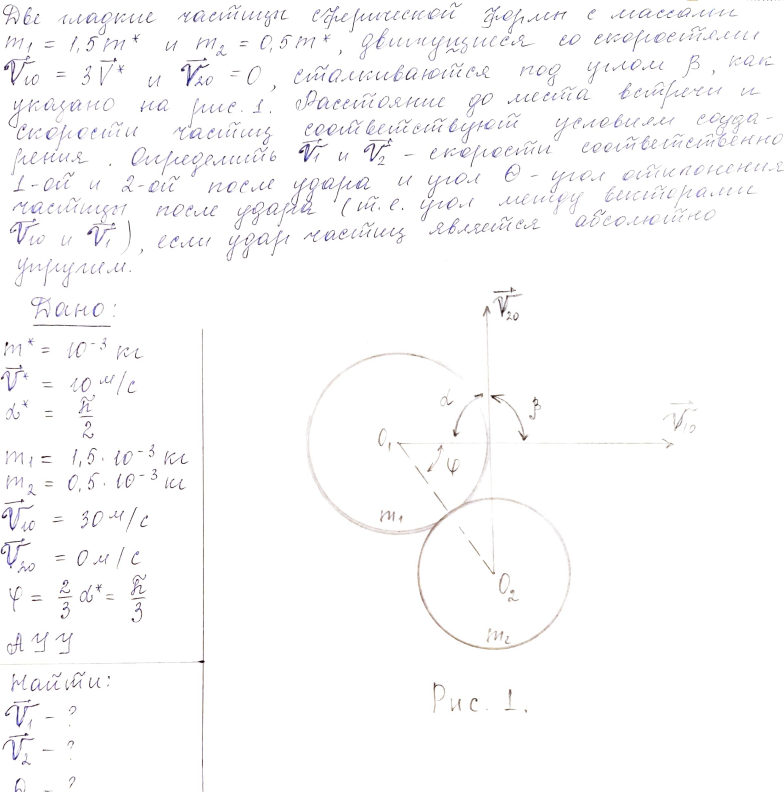 Две гладкие частицы сферической формы с массами
m₁ = 1,5m* и m₂ = 0,5m*, движущиеся со скоростями
V⃗₁₀ = 3V⃗* и V⃗₂₀ = 0, сталкиваются под углом β, как
указано на рис. 1. Расстояние до места встречи и
скорости частиц соответствуют условиям соуда-
рения. Определить V⃗₁ и V⃗₂ - скорости соответственно
1-ой и 2-ой после удара и угол Θ - угол отклонения
частицы после удара (т.е. угол между векторами
V⃗₁₀ и V⃗₁), если удар частиц является абсолютно
упругим.
Дано:
m* = 10⁻³ кг
V⃗* = 10 м/с
α* = π/2
m₁ = 1,5·10⁻³ кг
m₂ = 0,5·10⁻³ кг
V⃗₁₀ = 30 м/с
V⃗₂₀ = 0 м/с
φ = 2/3 α* = π/3
АУУ
Найти:
V⃗₁ - ?
V⃗₂ - ?
V⃗₂₀
α
β
V⃗₁₀
O₁
φ
m₁
O₂
m₂
Рис. 1.